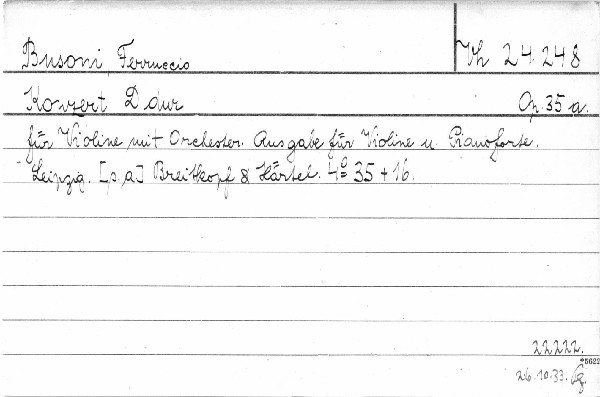 Busoni, Ferruccio Vh 24.248
Konzert D dur Op. 35 a.
für Violine mit Orchester. Ausgabe für Violine u. Pianoforte.
Leipzig. [s.a.] Breitkopf & Härtel. 4° 35 + 16.
22222.
*25622
26.10.33.